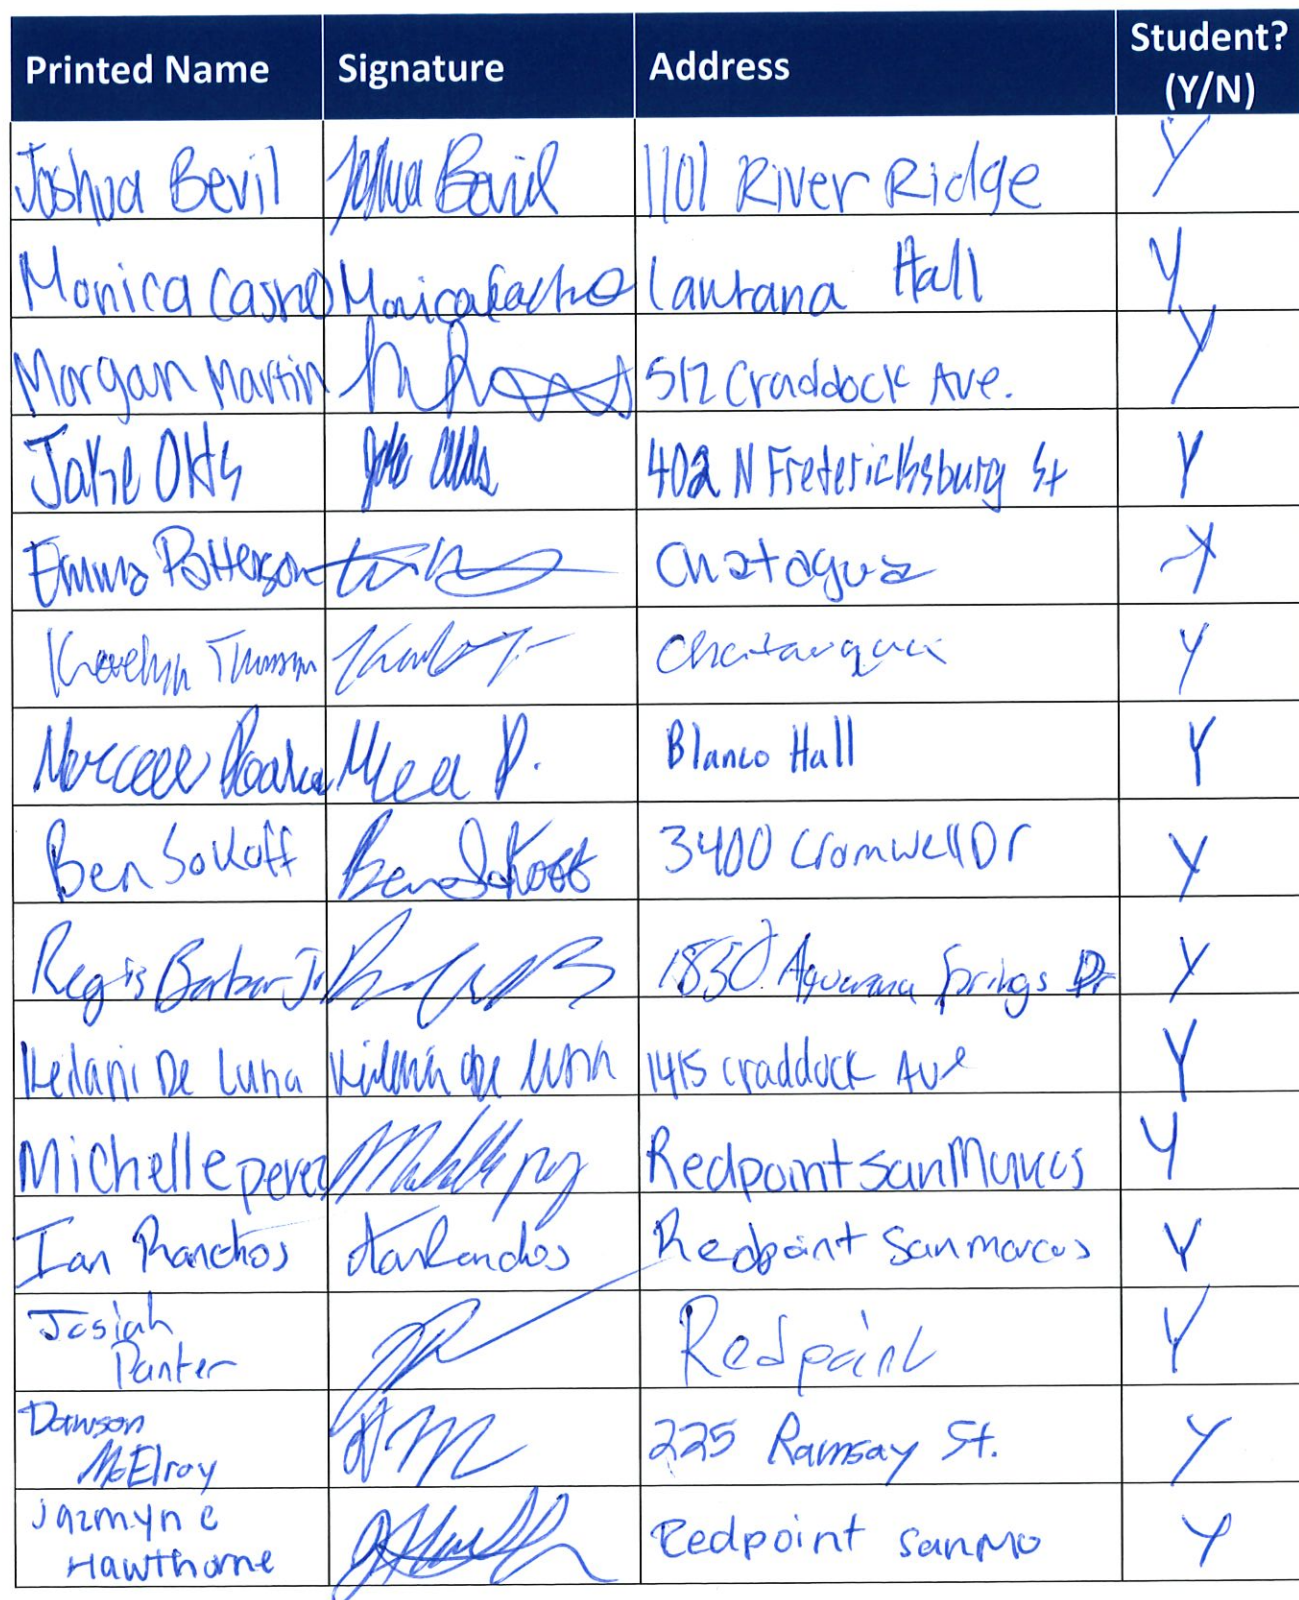 Printed Name Signature Address Student? (Y/N)
Joshua Bevil Joshua Bevil 1101 River Ridge Y
Monica Monica Lantana Hall Y
Morgan Martin 512 Craddock Ave. Y
Jake 402 N Fredericksburg St Y
Emma Patterson Chataqua Y
Katelyn Chatauqua Y
Blanco Hall Y
Ben Sokoff Ben Sokoff 3400 Cromwell Dr Y
Regis Barbar Jr 1850 Aquarena Springs Dr Y
Keilani De Luna Keilani de luna 1415 craddock Ave Y
Michelle perez Michelle Redpoint San Marcos Y
Ian Ranchos Ian Ranchos Redpoint San marcos Y
Josiah
Panter Redpoint Y
Dawson
McElroy DM 225 Ramsay St. Y
Jazmyne
Hawthorne Redpoint sanmo Y